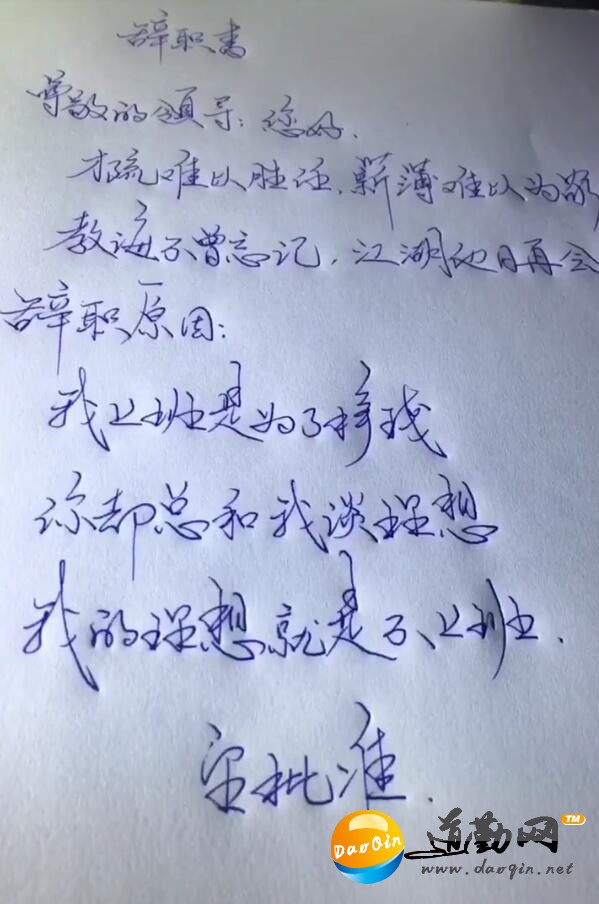 辞职书
尊敬的领导：您好.
才疏难以胜任，薪薄难以为敬
教诲不曾忘记，江湖他日再会
辞职原因：
我上班是为了挣钱
你却总和我谈理想
我的理想就是不上班.
望批准.
DaoQin
道勤网
TM
www.daoqin.net